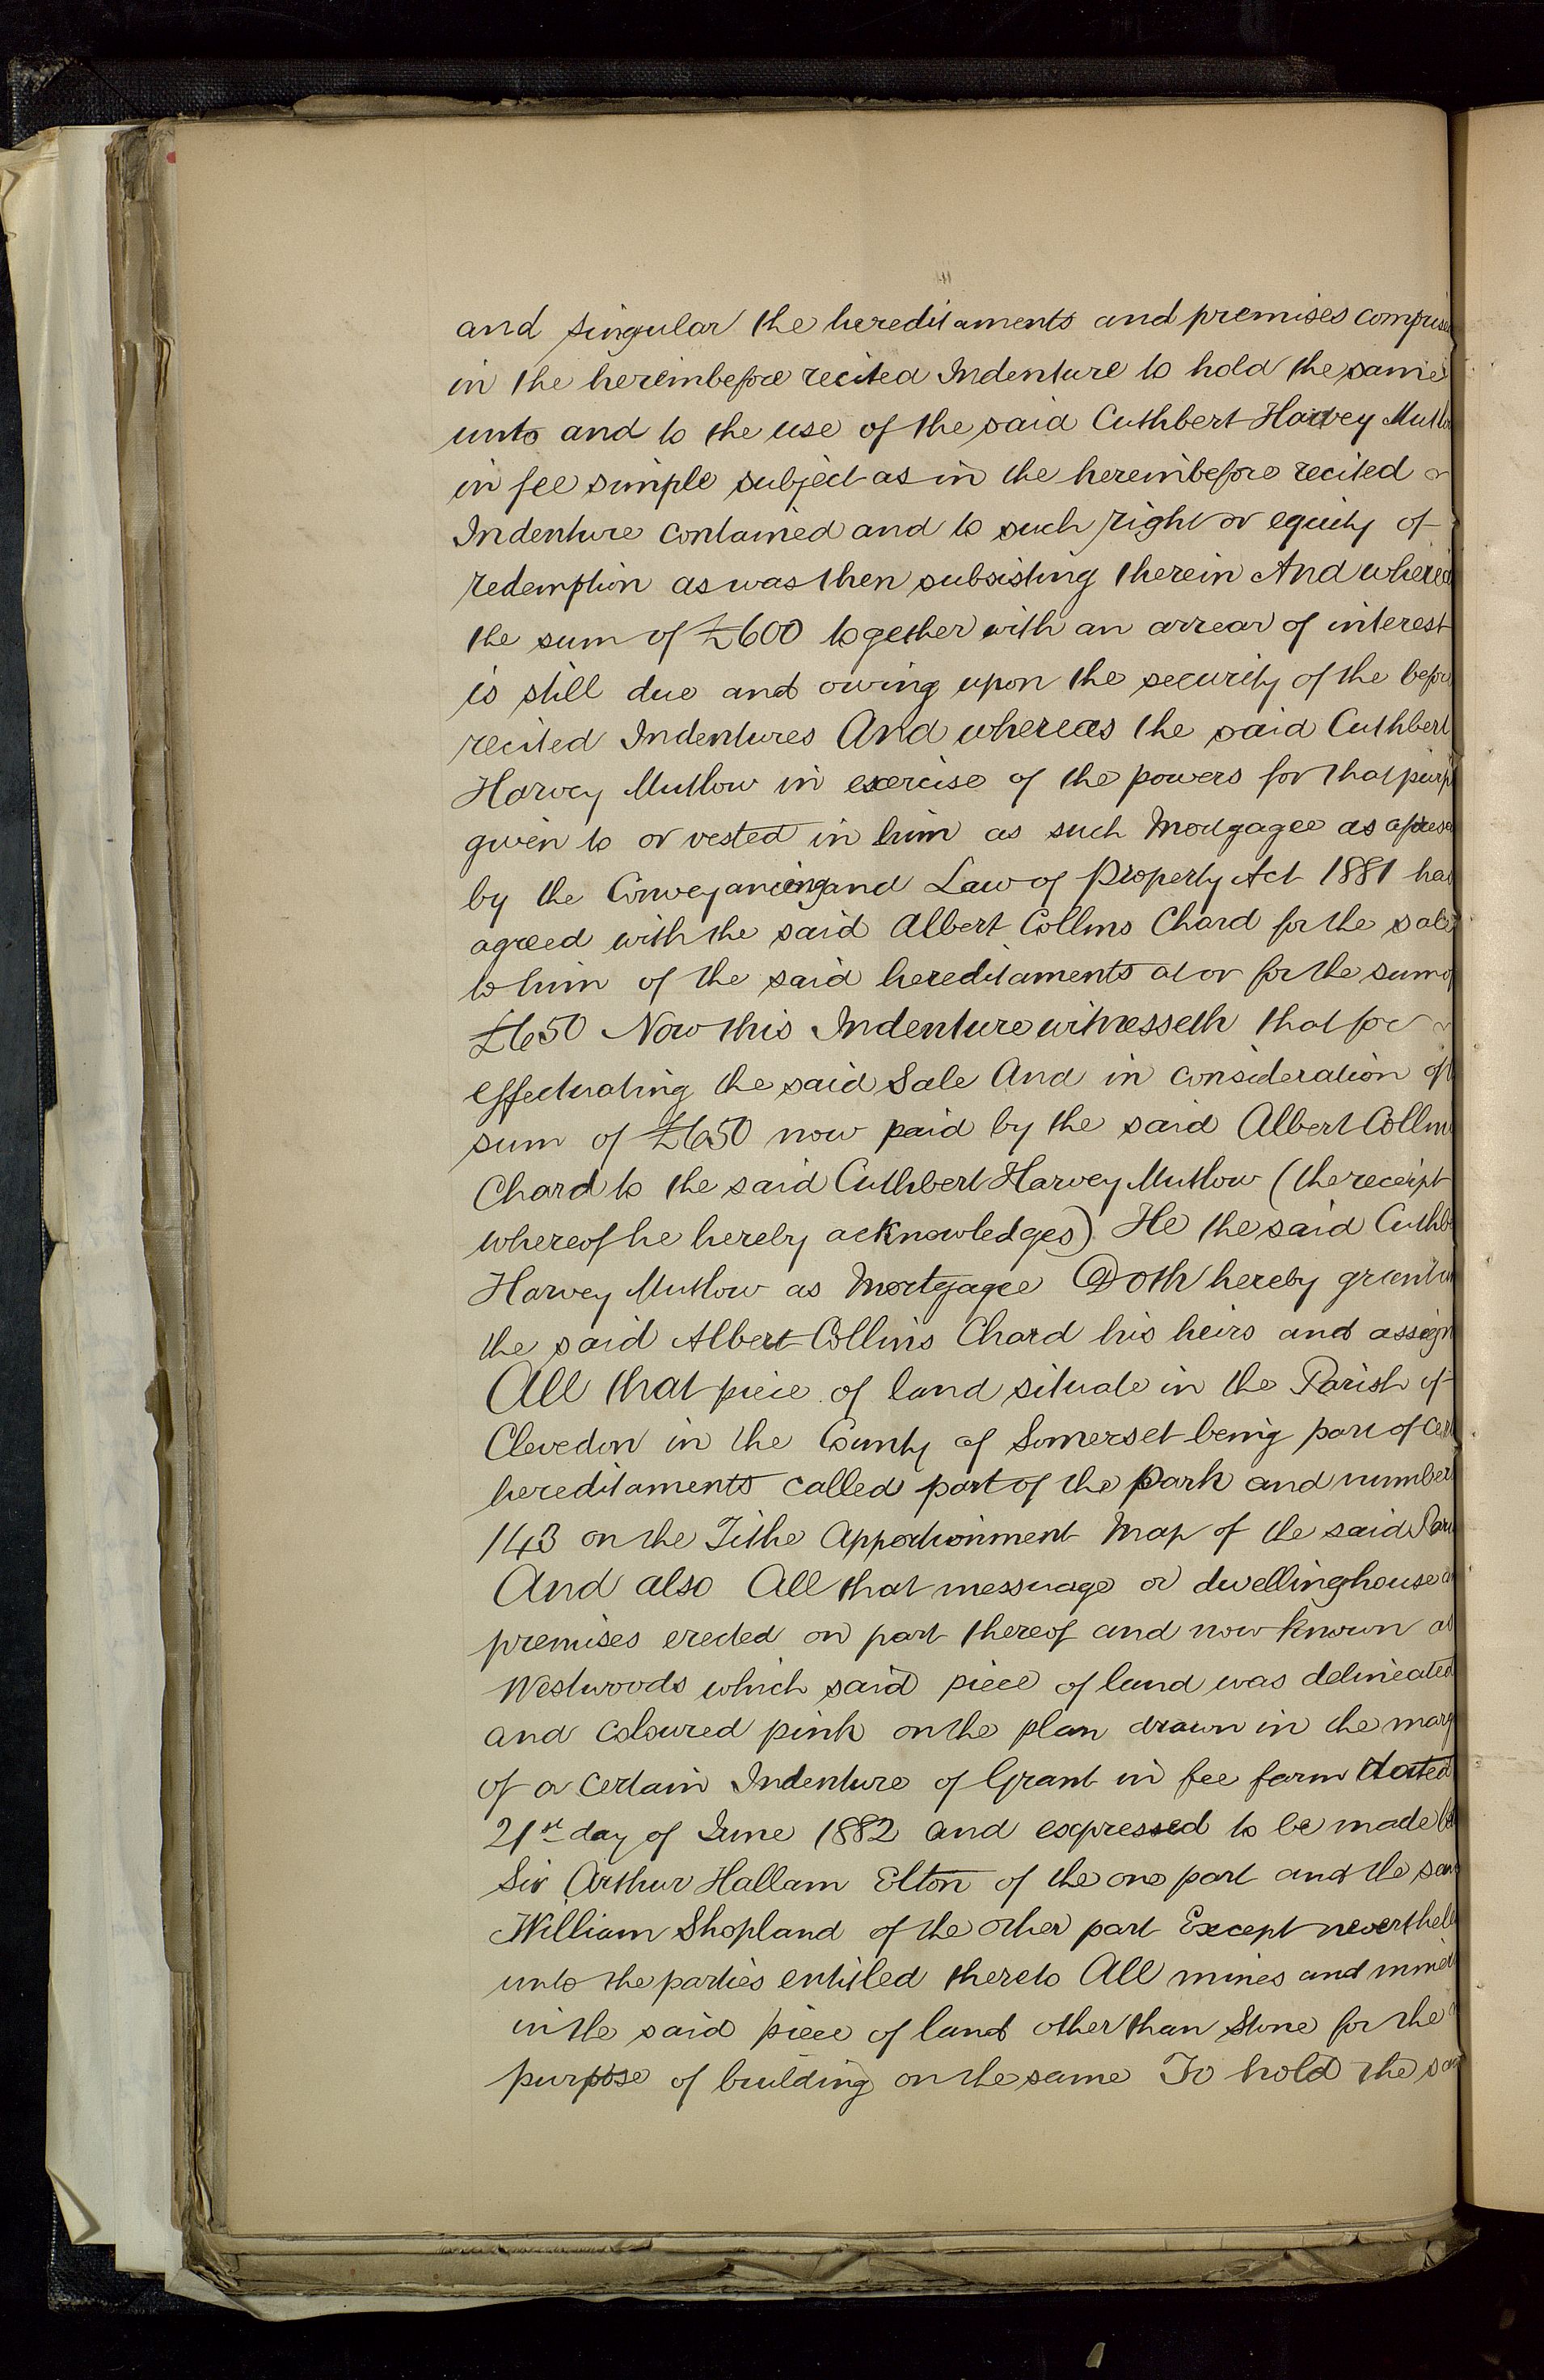 and singular the hereditaments and premises compris
in the hereinbefore recited Indenture to hold the same
unto and to the use of the said Cuthbert Harvey Mutlo
in fee simple subject as in the hereinbefore recited
Indenture contained and to such right or equity of
redemption as was then subsisting therein And where
the sum of £600 together with an arrear of interest
is still due and owing upon the security of the befor
recited Indentures And whereas the said Cuthbert
Harvey Mutlow in exercise of the powers for that purp
given to or vested in him as such Mortgagee as afores
by the Conveyancing and Law of Property Act 1881 has
agreed with the said Albert Collins Chard for the sale
to him of the said hereditaments at or for the sum o
£650 Now this Indenture witnesseth that for
effectuating the said Sale And in consideration of
sum of £650 now paid by the said Albert Collin
Chard to the said Cuthbert Harvey Mutlow (the receipt
whereof he hereby acknowledges) He the said Cuthb
Harvey Mutlow as Mortgagee Doth hereby grant
the said Albert Collins Chard his heirs and assign
All that piece of land situate in the Parish of
Clevedon in the County of Somerset being part of cer
hereditaments called part of the Park and number
143 on the Tithe Apportionment Map of the said Par
And also All that messuage or dwellinghouse a
premises erected on part thereof and now known as
Westwoods which said piece of land was delineated
and coloured pink on the plan drawn in the marg
of a certain Indenture of Grant in fee farm dated
21st day of June 1882 and expressed to be made be
Sir Arthur Hallam Elton of the one part and the sai
William Shopland of the other part Except neverthel
unto the parties entitled thereto All mines and mine
in the said piece of land other than Stone for the
purpose of building on the same To hold the sa